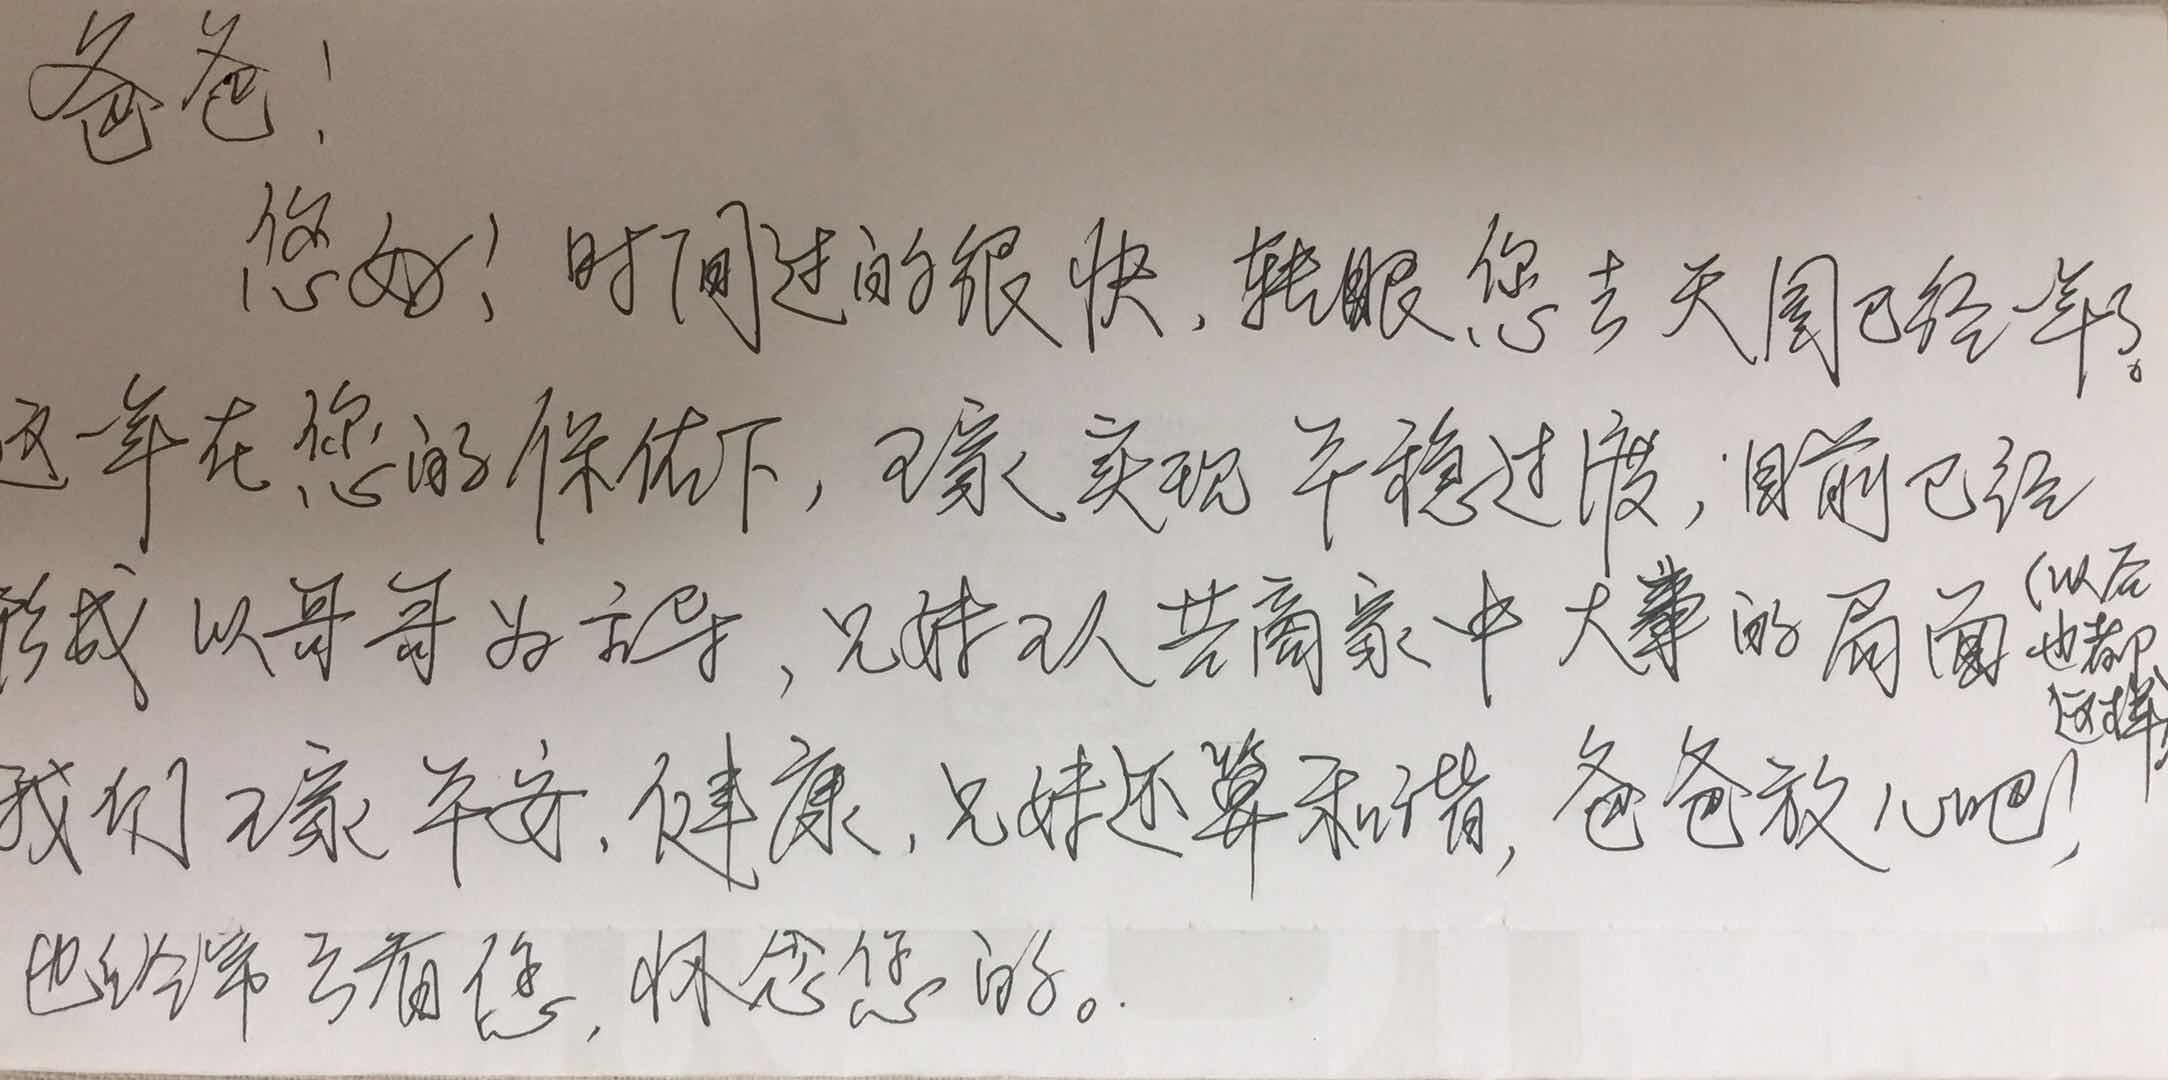 爸爸！
您好！时间过的很快，转眼您去天国已经一年了。
这一年在您的保佑下，王家实现平稳过渡，目前已经
形成以哥哥为主导，兄妹三人共商家中大事的局面（以后
也都
这样）
我们王家平安、健康，兄妹还算和谐，爸爸放心吧！
也经常去看您，怀念您的。